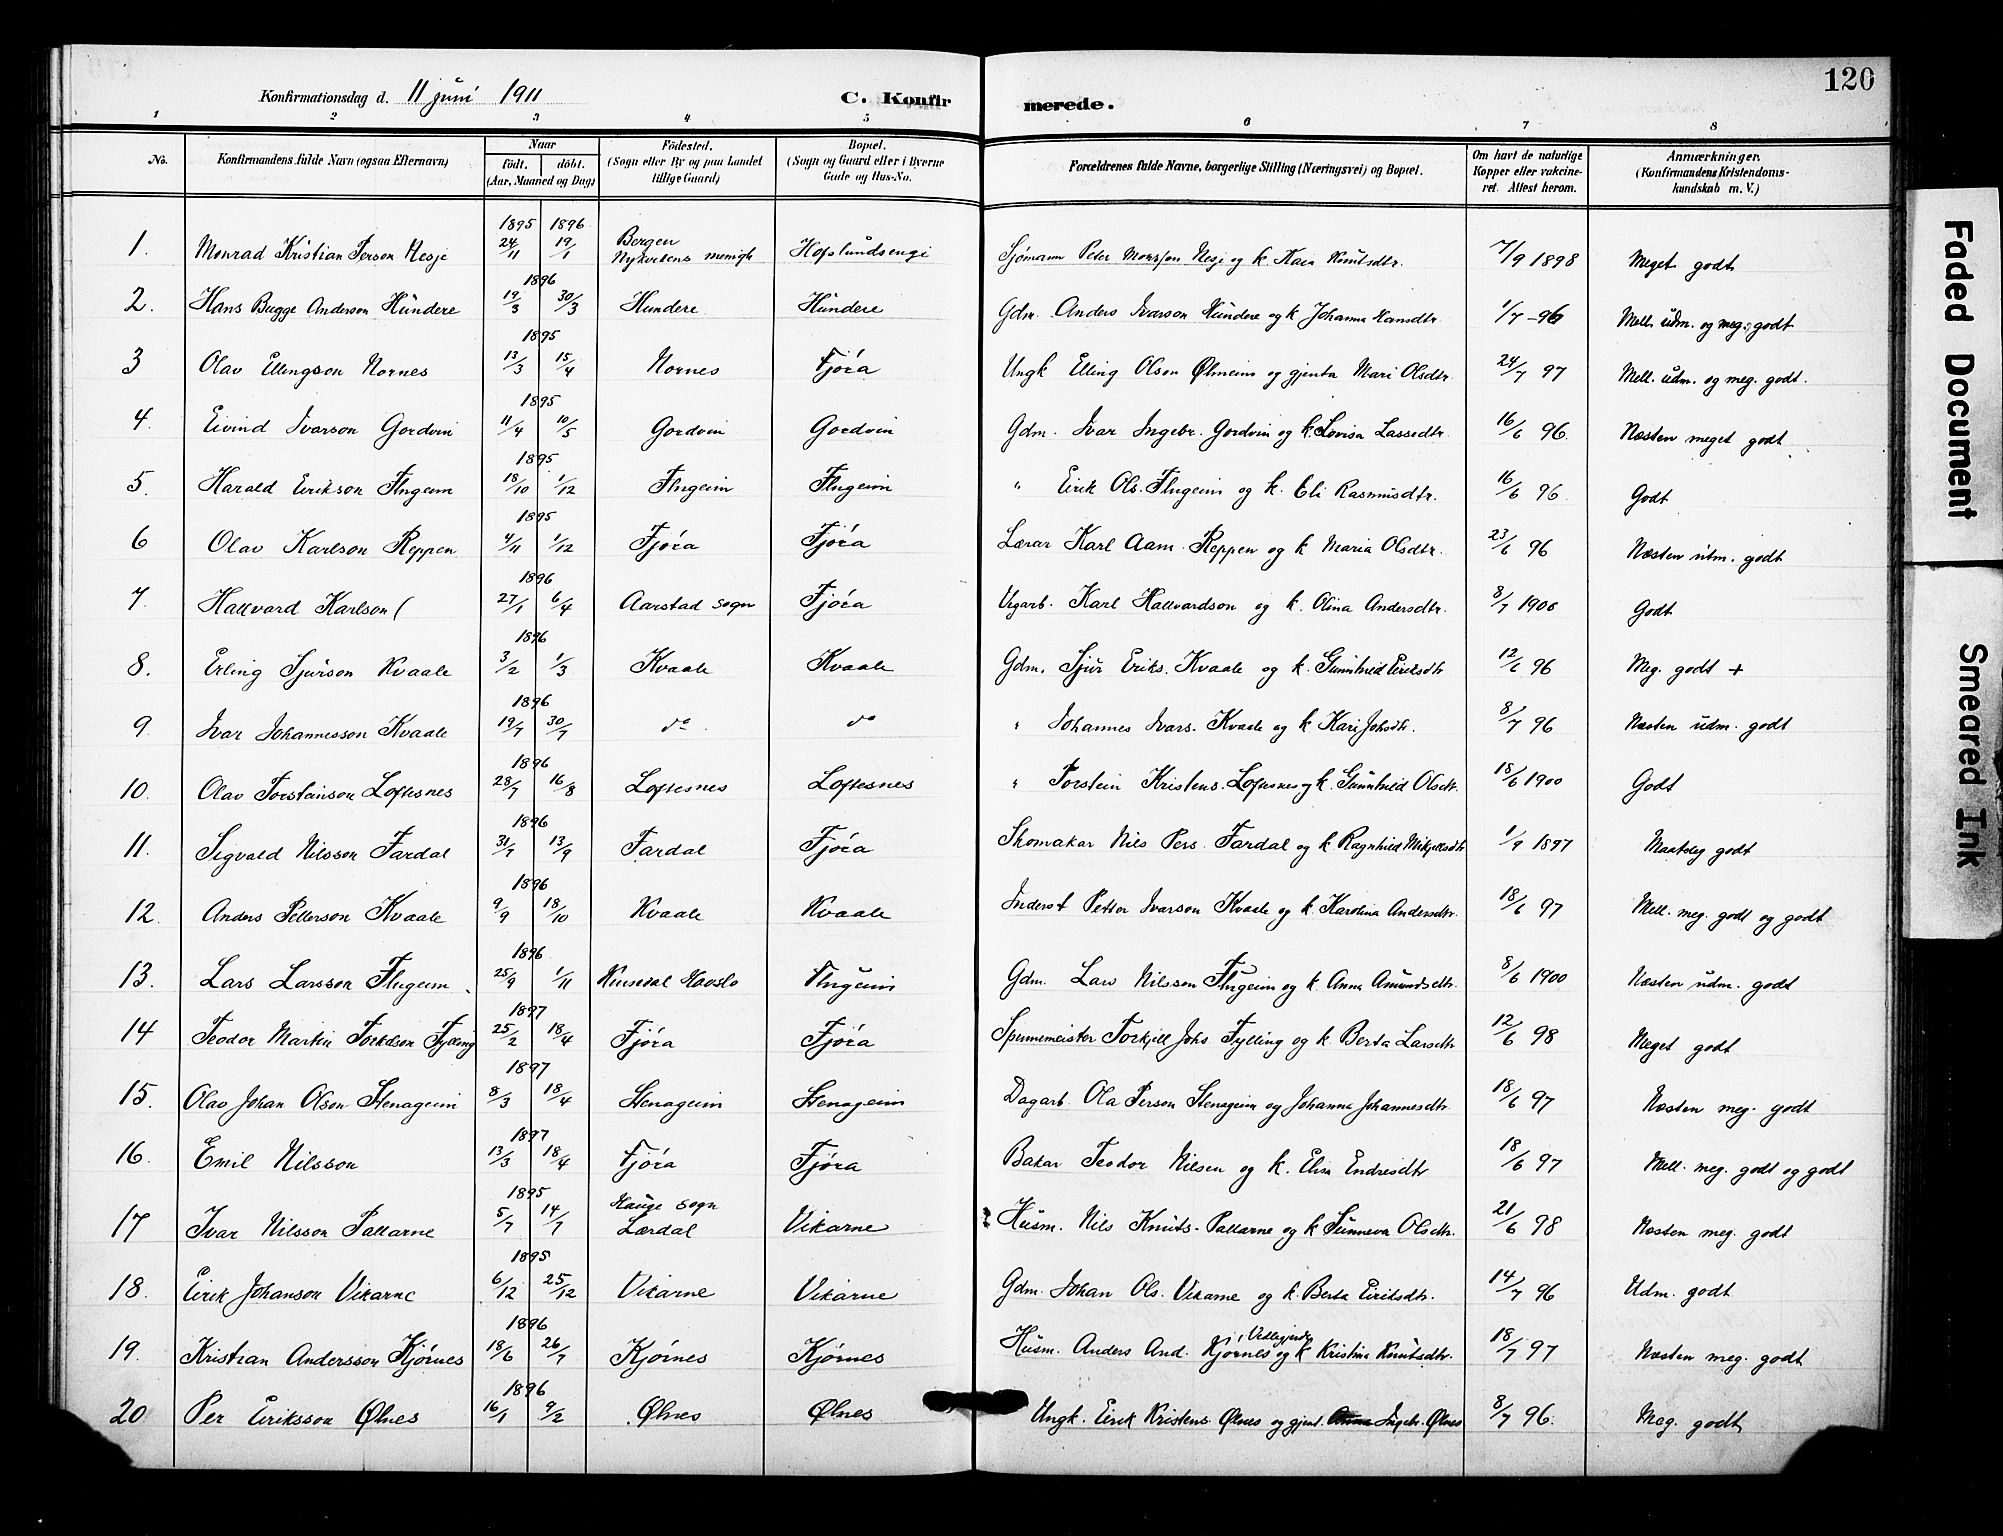 120
Konfirmationsdag d. 11 juni 1911 C. Konfirmerede.
1 2 3 4 5 6 7 8
No. Konfirmandens fulde Navn (ogsaa Efternavn) Naar födt. döbt. (Aar, Maaned og Dag) Födested. (Sogn eller By og paa Landet tillige Gaard) Bopæl. (Sogn og Gaard eller i Byerne Gade og Hus-No. Forældrenes fulde Navne, borgerlige Stilling (Næringsvei) og Bopæl. Om havt de naturlige Kopper eller vakcineret. Attest herom. Anmærkninger. (Konfirmandens Kristendomskundskab m. V.)
1895 1896
1. Monrad Kristian Person Nesje 24/11 19/1 Bergen Nykirkens menigh Hofslundsengi Sjømann Peter Monsson Nesje og k. Kaia Knutsdtr. 7/9 1898 Meget godt
1896
2. Hans Bugge Anderson Hundere 19/3 30/3 Hundere Hundere Gdm. Anders Ivarson Hundere og k Johanna Hansdtr. 1/7 -96 Mell. udm. og meg. godt
1895
3 Olav Ellingson Nornes 13/3 15/4 Nornes Fjøra Ungk Elling Olson Ølmeim og gjenta Mari Olsdtr 24/7 97 Mell. udm. og meg. godt.
1895
4. Eivind Ivarson Gordvin 11/4 10/5 Gordvin Gordvin Gdm. Ivar Ingebr. Gordvin og k. Lovisa Lassedtr. 16/6 96. Næsten meget godt
1895
5. Harald Eirikson Flugeim 18/10 1/12 Flugeim Flugeim " Eirik Ols. Flugeim og k. Eli Rasmusdtr. 16/6 96. Godt
1895
6 Olav Karlson Reppen 4/11 1/12 Fjøra Fjøra Lærar Karl Aam. Reppen og k Maria Olsdtr. 23/6 96 Næsten utm. godt
1896
7. Hallvard Karlson ( 27/1 6/4 Aarstad sogn Fjøra Vegarb. Karl Hallvardson og k. Olina Andersdtr. 8/7 1906 Godt
1896
8. Erling Sjurson Kvaale 3/2 1/3 Kvaale Kvaale Gdm. Sjur Eriks. Kvaale og k. Gunnhild Eiriksdtr 12/6 96 Meg. godt +
1896
9. Ivar Johannesson Kvaale 19/7 30/7 do do " Johannes Ivars. Kvaale og k Kari Johsdtr. 8/7 96 Næsten udm. godt
1896
10. Olav Torsteinson Loftesnes 28/7 16/8 Loftesnes Loftesnes " Torstein Kristens. Loftesnes og k. Gunnhild Olsdtr. 18/6 1900 Godt
1896
11. Sigvald Nilsson Fardal 31/7 13/9 Fardal Fjøra Skomakar Nils Pers. Fardal og k. Ragnhild Mikjellsdtr 1/9 1897 Maateleg godt
1896
12. Anders Petterson Kvaale 9/9 18/10 Kvaale Kvaale Inderst Petter Ivarson Kvaale og k. Karolina Andersdtr. 18/6 97 Mell. meg. godt og godt
1896
13. Lars Larsson Flugeim 25/9 1/11 Kinsedal Havslo Flugeim Gdm. Lars Nilsson Flugeim og k. Anna Amundsdtr. 8/6 1900 Næsten udm. godt
1897
14 Teodor Martin Torkelson Fylling 25/2 18/4 Fjøra Fjøra Spennemeister Torkjell Johs Fylling og k. Berta Larsdtr 12/6 98 Meget godt
1897
15. Olav Johan Olson Stenageim 8/3 18/4 Stenageim Stenageim Dagarb. Ola Person Stenageim og Johanna Johannesdtr. 18/6 97 Næsten meg. godt
1897
16. Emil Nilsson 13/3 18/4 Fjøra Fjøra Bakar Teodor Nilsen og k. Elisa Endresdtr 18/6 97 Mell. meg. godt og godt
1895
17 Ivar Nilsson Pallarne 5/7 14/7 Hauge sogn Lærdal Vikarne Husm. Nils Knuts- Pallarne og k Sunneva Olsdtr. 21/6 98 Næsten meg. godt
1895
18. Eirik Johanson Vikarne 6/12 25/12 Vikarne Vikarne Gdm. Johan Ols. Vikarne og k. Berta Eiriksdtr. 14/7 96 Udm. godt
1896
19. Kristian Andersson Kjørnes 18/6 26/7 Kjørnes Kjørnes Husm. Anders And. Kjørnes og k Kristina Knutsdtr. 18/7 97 Næsten meg. godt
1896
20 Per Eiriksson Ølnes 16/1 9/2 Ølnes Ølnes Ungk. Eirik Kristens. Ølnes og gjent. Anna Ingebr. Ølnes 8/7 96. Meg. godt
Faded Document
Smeared Ink